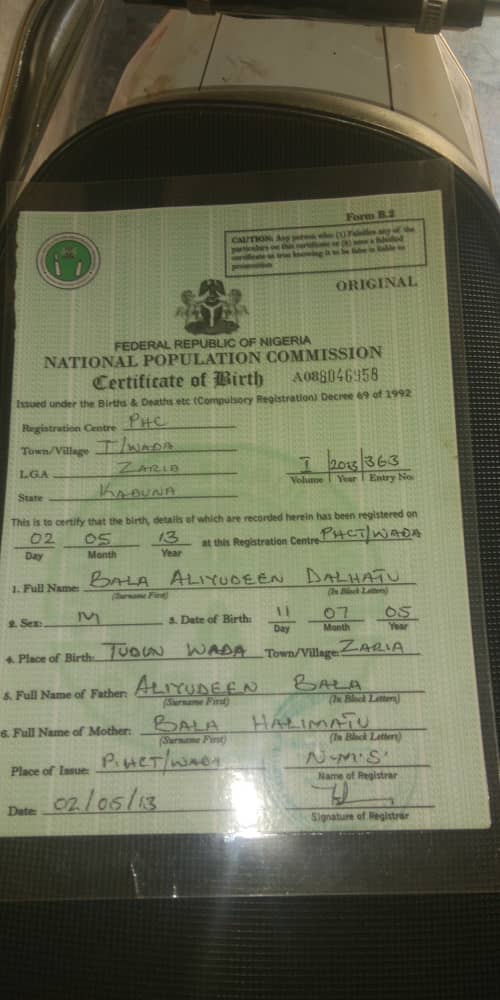 Form B.2
CAUTION: Any person who (1) Falsifies any of the
particulars on this certificate or (2) uses a falsified
certificate as true knowing it to be false is liable to
prosecution
ORIGINAL
FEDERAL REPUBLIC OF NIGERIA
NATIONAL POPULATION COMMISSION
Certificate of Birth A088046958
Issued under the Births & Deaths etc (Compulsory Registration) Decree 69 of 1992
Registration Centre PHC
Town/Village T/WADA
L.G.A ZARIA
I 2013 363
Volume Year Entry No:
State KADUNA
This is to certify that the birth, details of which are recorded herein has been registered on
02 05 13 at this Registration Centre PHCT/WADA
Day Month Year
1. Full Name: BALA ALIYUDEEN DALHATU
(Surname First) (In Block Letters)
2. Sex: M 3. Date of Birth: 11 07 05
Day Month Year
4. Place of Birth: TUDUN WADA Town/Village: ZARIA
5. Full Name of Father: ALIYUDEEN BALA
(Surname First) (In Block Letters)
6. Full Name of Mother: BALA HALIMATU
(Surname First) (In Block Letters)
Place of Issue: P.HCT/WADA N.M.S.
Name of Registrar
Date: 02/05/13
Signature of Registrar